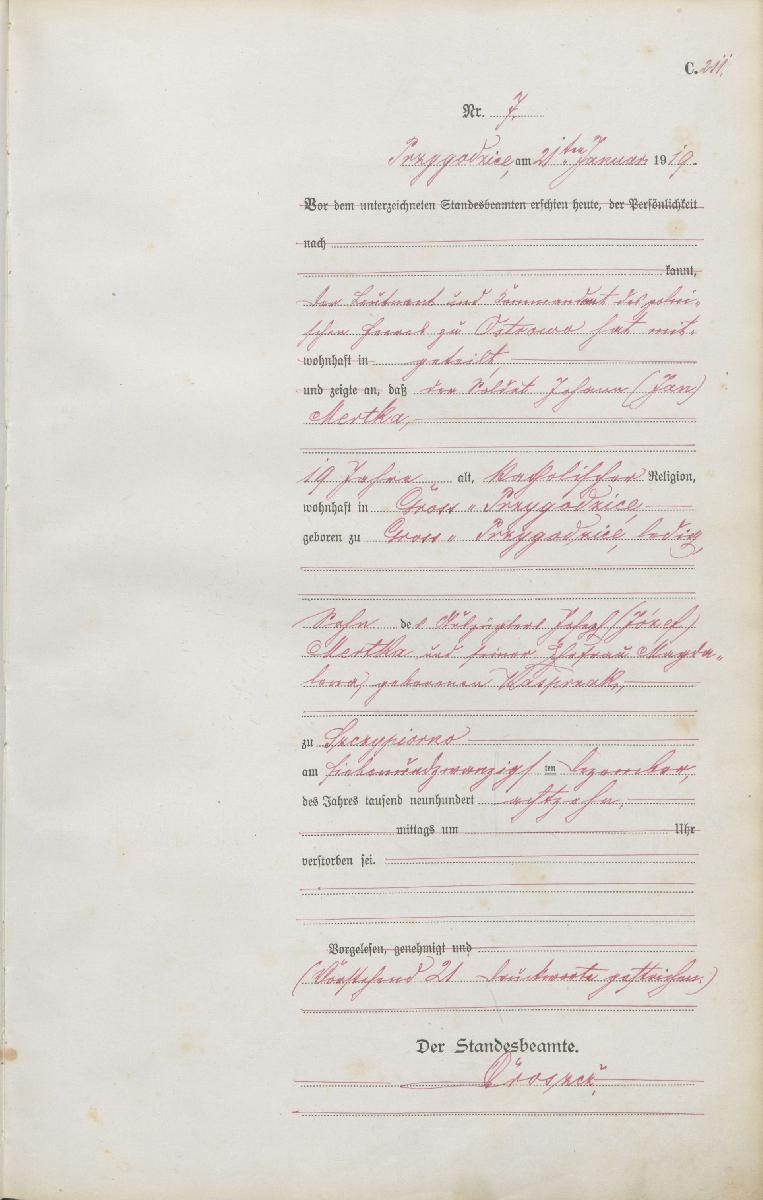 C. 211.
Nr. 7.
Przygodzice, am 21ten Januar 1919.
Vor dem unterzeichneten Standesbeamten erschien heute, der Persönlichkeit
nach
kannt,
der Leutnant und Kommandant des polni-
schen Heeres zu Ostrowo hat mit-
wohnhaft in geteilt,
und zeigte an, daß der Soldat Johann (Jan)
Mertka,
19 Jahre alt, katholischer Religion,
wohnhaft in Gross-Przygodzice,
geboren zu Gross-Przygodzice, ledig
Sohn des Joseph (Józef)
Mertka und seiner Ehefrau Magda-
lena, geborenen Kasprzak,
zu Szczypiorno
am siebenundzwanzigsten Dezember,
des Jahres tausend neunhundert achtzehn,
mittags um Uhr
verstorben sei.
Vorgelesen, genehmigt und
(Vorstehend 21 Druckworte gestrichen.)
Der Standesbeamte.